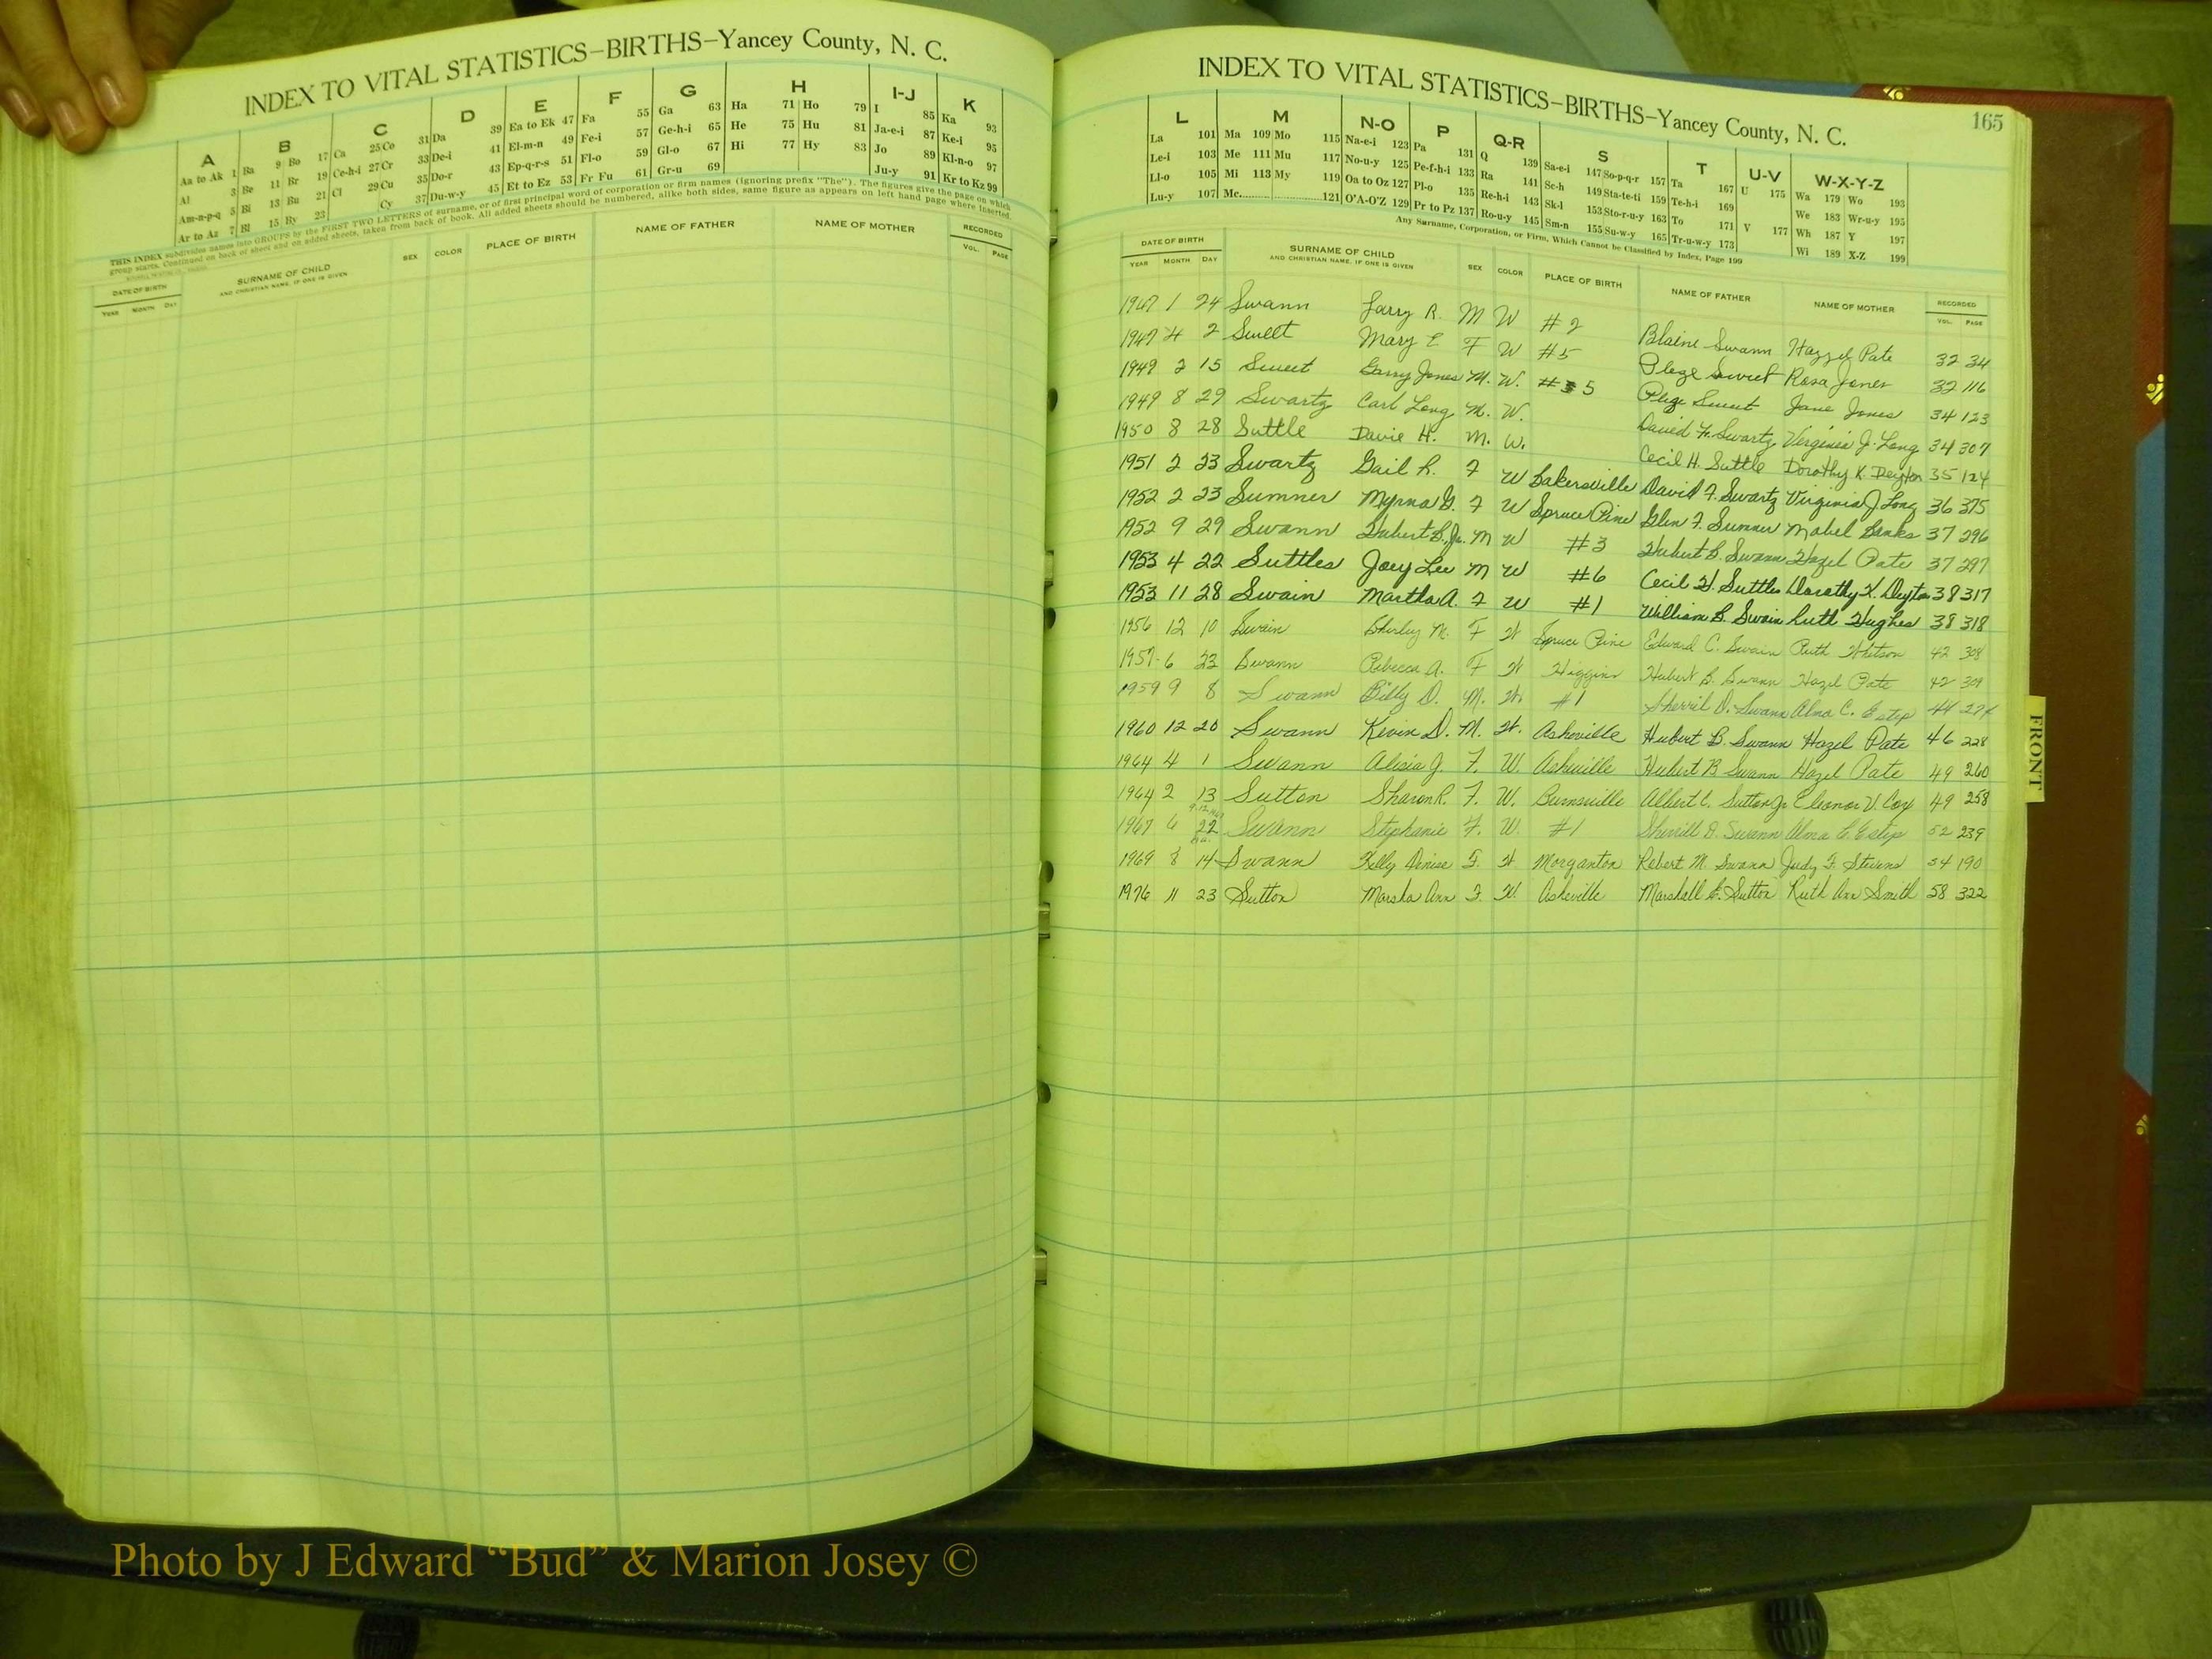 INDEX TO VITAL STATISTICS–BIRTHS–Yancey County, N. C.
A B C D E F G H I-J K
Aa to Ak 1 Ba 9 Bo 17 Ca 25 Co 31 Da 39 Ea to Ek 47 Fa 55 Ga 63 Ha 71 Ho 79 I 85 Ka 93
Al 3 Be 11 Br 19 Ce-h-i 27 Cr 33 De-i 41 El-m-n 49 Fe-i 57 Ge-h-i 65 He 75 Hu 81 Ja-e-i 87 Ke-i 95
Am-n-p-q 5 Bi 13 Bu 21 Cl 29 Cu 35 Do-r 43 Ep-q-r-s 51 Fl-o 59 Gl-o 67 Hi 77 Hy 83 Jo 89 Kl-n-o 97
Ar to Az 7 Bl 15 By 23 Cy 37 Du-w-y 45 Et to Ez 53 Fr Fu 61 Gr-u 69 Ju-y 91 Kr to Kz 99
THIS INDEX subdivides names into GROUPS by the FIRST TWO LETTERS of surname, or of first principal word of corporation or firm names (ignoring prefix "The"). The figures give the page on which
group starts. Continued on back of sheet and on added sheets, taken from back of book. All added sheets should be numbered, alike both sides, same figure as appears on left hand page where inserted.
DATE OF BIRTH SURNAME OF CHILD SEX COLOR PLACE OF BIRTH NAME OF FATHER NAME OF MOTHER RECORDED
YEAR MONTH DAY AND CHRISTIAN NAME, IF ONE IS GIVEN VOL. PAGE
INDEX TO VITAL STATISTICS–BIRTHS–Yancey County, N. C.
165
L M N-O P Q-R S T U-V W-X-Y-Z
La 101 Ma 109 Mo 115 Na-e-i 123 Pa 131 Q 139 Sa-e-i 147 So-p-q-r 157 Ta 167 U 175 Wa 179 Wo 193
Le-i 103 Me 111 Mu 117 No-u-y 125 Pe-f-h-i 133 Ra 141 Sc-h 149 Sta-te-ti 159 Te-h-i 169 We 183 Wr-u-y 195
Ll-o 105 Mi 113 My 119 Oa to Oz 127 Pl-o 135 Re-h-i 143 Sk-l 153 Sto-r-u-y 163 To 171 V 177 Wh 187 Y 197
Lu-y 107 Mc 121 O'A-O'Z 129 Pr to Pz 137 Ro-u-y 145 Sm-n 155 Su-w-y 165 Tr-u-w-y 173 Wi 189 X-Z 199
Any Surname, Corporation, or Firm, Which Cannot be Classified by Index, Page 199
DATE OF BIRTH SURNAME OF CHILD SEX COLOR PLACE OF BIRTH NAME OF FATHER NAME OF MOTHER RECORDED
YEAR MONTH DAY AND CHRISTIAN NAME, IF ONE IS GIVEN VOL. PAGE
1947 1 24 Swann Larry R. M W #2 Blaine Swann Hazel Pate 32 34
1947 4 2 Sweet Mary E F W #5 Plege Sweet Rosa Jones 32 116
1949 2 15 Sweet Garry Jones M. W. #5 Sweet Jane Jones 34 123
1949 8 29 Swartz Carl Long M. W. David F. Swartz Virginia J. Long 34 307
1950 8 28 Suttle Davie H. M. W. Cecil H. Suttle Dorothy K. Deyton 35 124
1951 2 23 Swartz Gail L. F W Bakersville David F. Swartz Virginia J. Long 36 375
1952 2 23 Sumner Myrna G. F W Spruce Pine Glen F. Sumner Mabel Banks 37 296
1952 9 29 Swann Hubert B., Jr. M W #3 Hubert B. Swann Hazel Pate 37 297
1953 4 22 Suttles Joey Lee M W #6 Cecil H. Suttles Dorothy K. Deyton 38 317
1953 11 28 Swain Martha A. F W #1 William B. Swain Ruth Hughes 38 318
1956 12 10 Swain Shirley M. F W Spruce Pine Edward C. Swain Ruth Whitson 42 308
1957 6 23 Swann Rebecca A. F W Higgins Hubert B. Swann Hazel Pate 42 309
1959 9 8 Swann Billy D. M. W. #1 Sherril D. Swann Alma C. Estep 44
1960 12 20 Swann Kevin D. M. W. Asheville Hubert B. Swann Hazel Pate 46 228
1964 4 1 Swann Alisia J. F. W. Asheville Hubert B Swann Hazel Pate 49 260
1964 2 13 Sutton Sharon R. F. W. Burnsville Albert C. Sutton Jr Eleanor V. Cox 49 258
1967 6 22 Swann Stephanie F. W. #1 Sherrill D. Swann Alma C Estep 52 239
1969 8 14 Swann Kelly Denise F. W Morganton Robert M. Swann Judy F. Stevens 54 190
1976 11 23 Sutton Marsha Ann F. W. Asheville Marshall E. Sutton Ruth Ann Smith 58 322
FRONT
Photo by J Edward “Bud” & Marion Josey ©